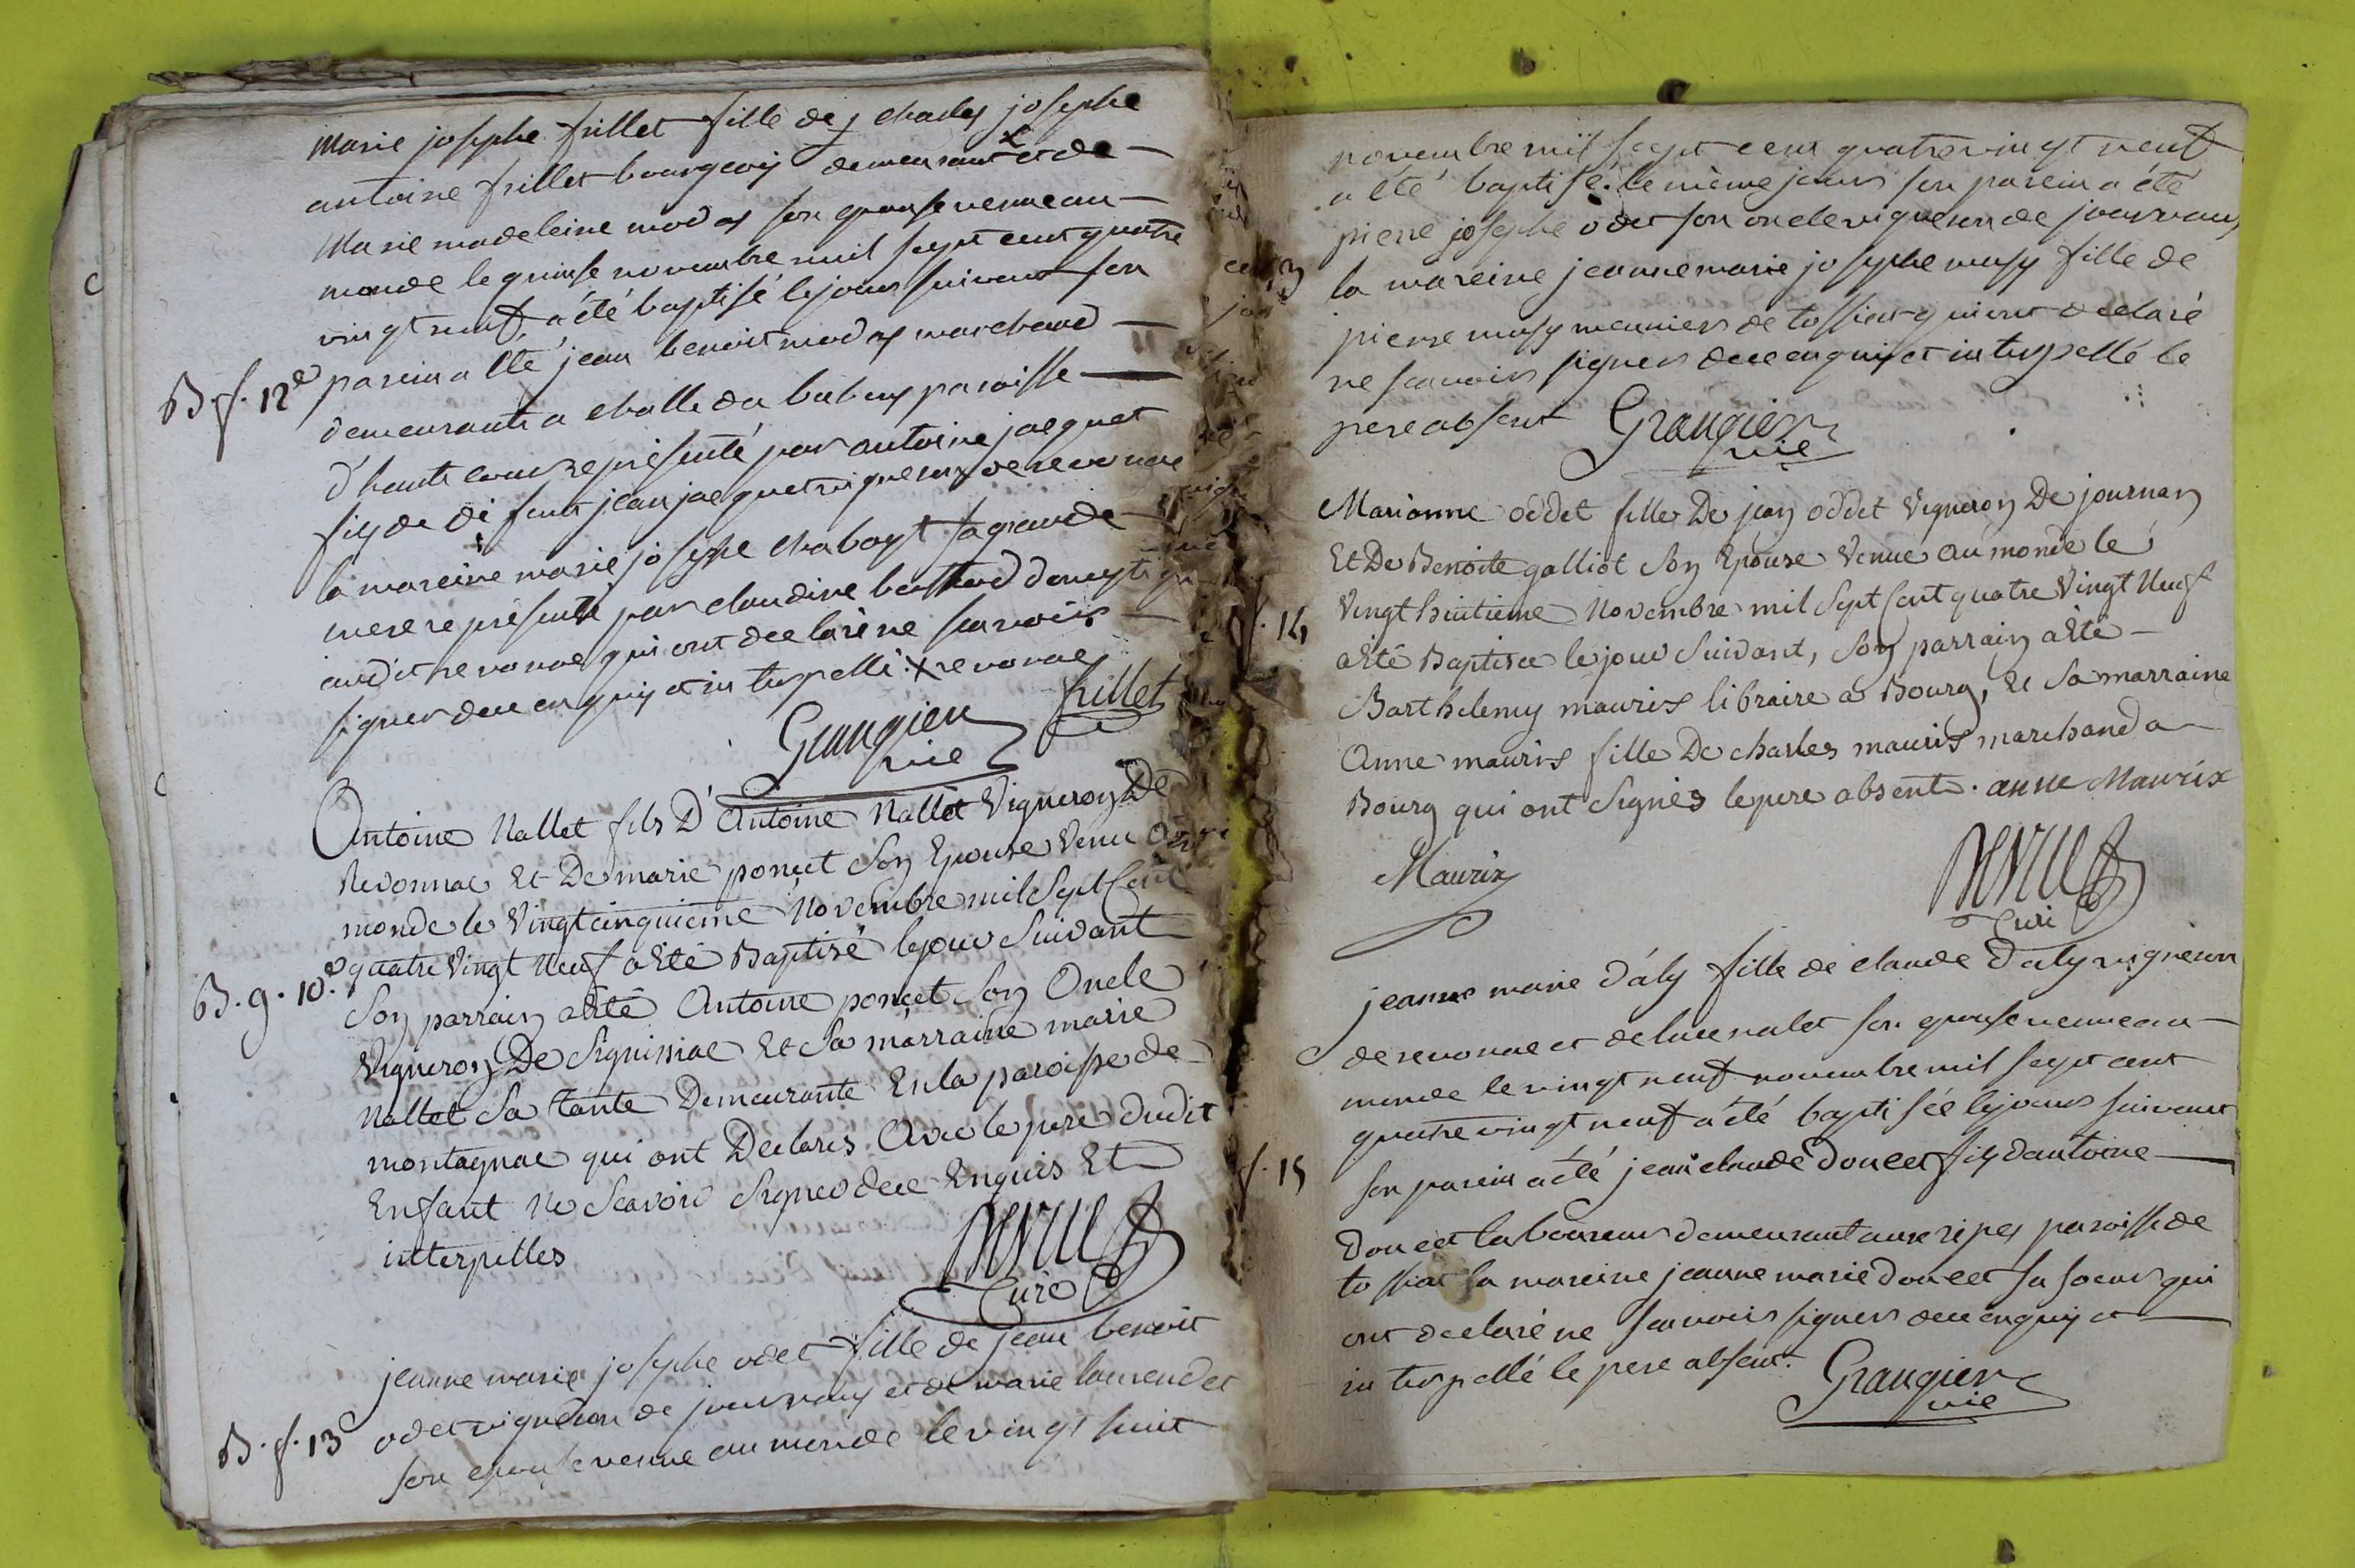 Marie josephe frillet fille de charles josephe
antoine frillet bourgeois demeurant X et de
Marie madeleine modas son epouse venue au
monde le quinse novembre mil sept cent quatre
vingt neuf a été baptisé le jour suivant son
B. f. 12e parein a été jean benoit modas marchand
demeurant a challe du paroisse
d'haute cour représenté par antoine jacquet
fils de défunt jean jacquet vigneron de revonnas
la mareine marie josephe chaboyt sa grande
mere représenté par claudine
audit revonnas qui ont declaré ne scavoir
signer de ce enquis et interpellé. X revonnas
Grangier vic frillet
Antoine Nallet fils D'Antoine Nallet Vigneron De
Revonnas Et De marie poncet Son Epouse Venu Au
monde le Vingtcinquieme Novembre mil Sept Cent
quatre Vingt Neuf a Eté Baptisé le jour Suivant
B. g. 10e Son parrain a Eté Antoine poncet Son Oncle
Vigneron De Signissiac Et Sa marraine marie
Nallet Sa tante Demeurante En la paroisse de
montagnac qui ont Declarés Avec le pere dudit
Enfant Ne Scavoir Signer de ce Enquis Et
interpellés
Curé
jeanne marie josephe odet fille de jean benoit
B. f. 13 odet vigneron de journans et de marie laurendet
son epouse venue au monde le vingt huit
novembre mil sept cent quatre vingt neuf
a été baptisé le même jour son parein a été
pierre josephe odet son oncle vigneron de journans
la mareine jeanne marie josephe musy fille de
pierre musy meunier de tossiat qui ont declaré
ne scavoir signer de ce enquis et interpellé le
pere absent Grangier vic
Marianne oddet fille De jean oddet Vigneron De journan
Et De Benoite galliot Son Epouse Venue au monde le
Vingt huitieme Novembre mil Sept Cent quatre Vingt Neuf
f. 14 a Eté Baptisée le jour Suivant, Son parrain a Eté
Barthelemy mauris libraire a Bourg, Et Sa marraine
Anne mauris fille De charles mauris marchand a
Bourg qui ont Signés le pere absent. anne Maurix
Maurix
Curé
jeanne marie d'aly fille de claude Daly vigneron
de revonnas et de luce nalet son epouse venue au
monde le vingt neuf novembre mil sept cent
quatre vingt neuf a été baptisée le jour suivant
f. 15 son parein a été jean claude doucet fils d'antoine
doucet laboureur demeurant aux ripes paroisse de
tossiat la mareine jeanne marie doucet sa soeur qui
ont declaré ne scavoir signer de ce enquis et
interpellé le pere absent. Grangier vic